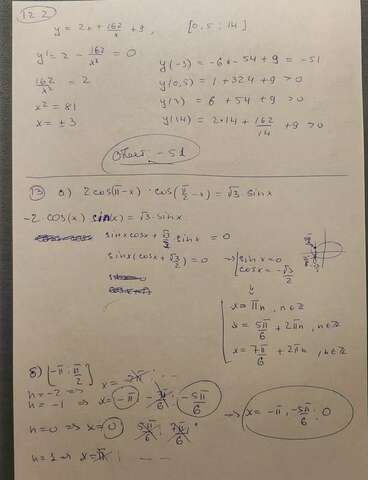 12.2
y = 2x + 162/x + 9, [0,5; 14]
y' = 2 - 162/x² = 0
162/x² = 2
x² = 81
x = ±3
y(-3) = -6 - 54 + 9 = -51
y(0,5) = 1 + 324 + 9 > 0
y(3) = 6 + 54 + 9 > 0
y(14) = 2·14 + 162/14 + 9 > 0
Ответ -51
13 а) 2cos(π-x)·cos(π/2-x) = √3·sinx
-2·cos(x)·sin(x) = √3·sinx
sinx cosx + √3/2 sinx = 0
sinx(cosx + √3/2) = 0 → sinx = 0
cosx = -√3/2
x = πn, n∈Z
x = 5π/6 + 2πn, n∈Z
x = 7π/6 + 2πn, n∈Z
б) [-π; π/2]
n = -2 => x =
n = -1 => x = -π; -7π/6; -5π/6
n = 0 => x = 0; 5π/6; 7π/6
=> x = -π; -5π/6; 0
n = 1 => x = π;